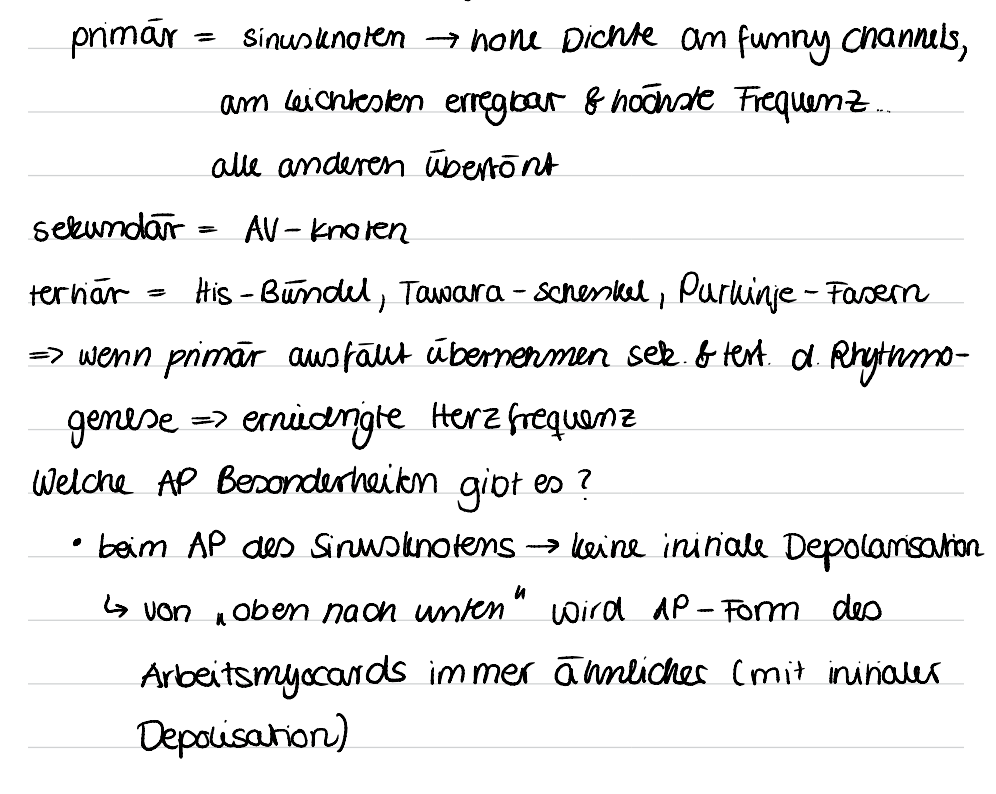 primär = Sinusknoten → hohe Dichte an funny channels,
am leichtesten erregbar & höchste Frequenz..
alle anderen übertönt
sekundär = AV-Knoten
tertiär = His-Bündel, Tawara-Schenkel, Purkinje-Fasern
=> wenn primär ausfällt übernehmen sek. & tert. d. Rhythmo-
genese => erniedrigte Herzfrequenz
Welche AP Besonderheiten gibt es?
• beim AP des Sinusknotens → keine initiale Depolarisation
↳ von „oben nach unten" wird AP-Form des
Arbeitsmyocards immer ähnlicher (mit initialer
Depolisation)